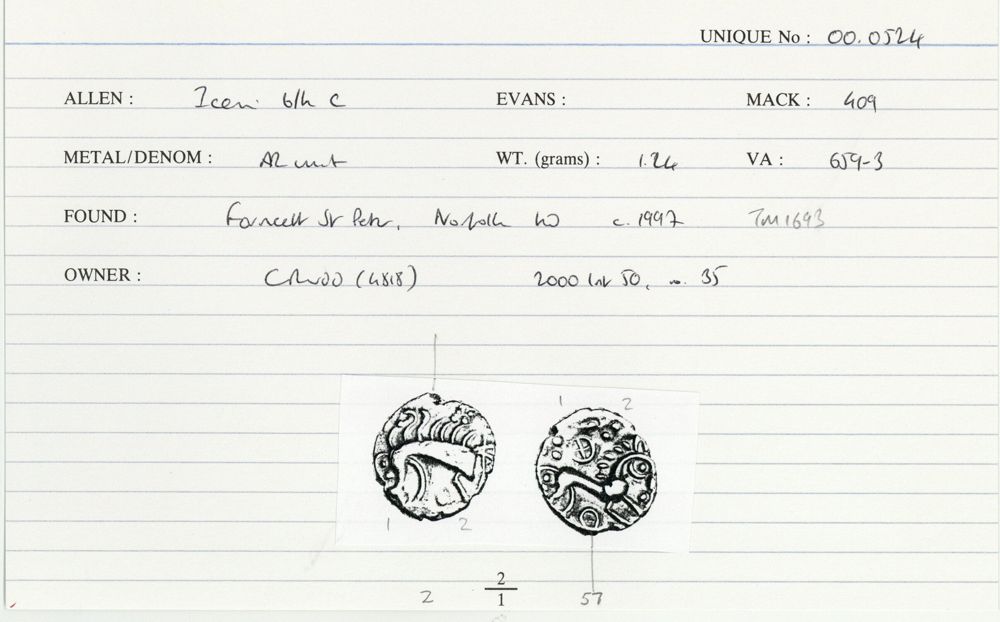 UNIQUE No : 00.0524
ALLEN : Iceni b/h C EVANS : MACK : 409
METAL/DENOM : AR unit WT. (grams) : 1.24 VA : 659-3
FOUND : Forncett St Peter, Norfolk c. 1997 TM1693
OWNER : CRWOO (4818) 2000 no. 35
1 2
1 2
2 2/1 57